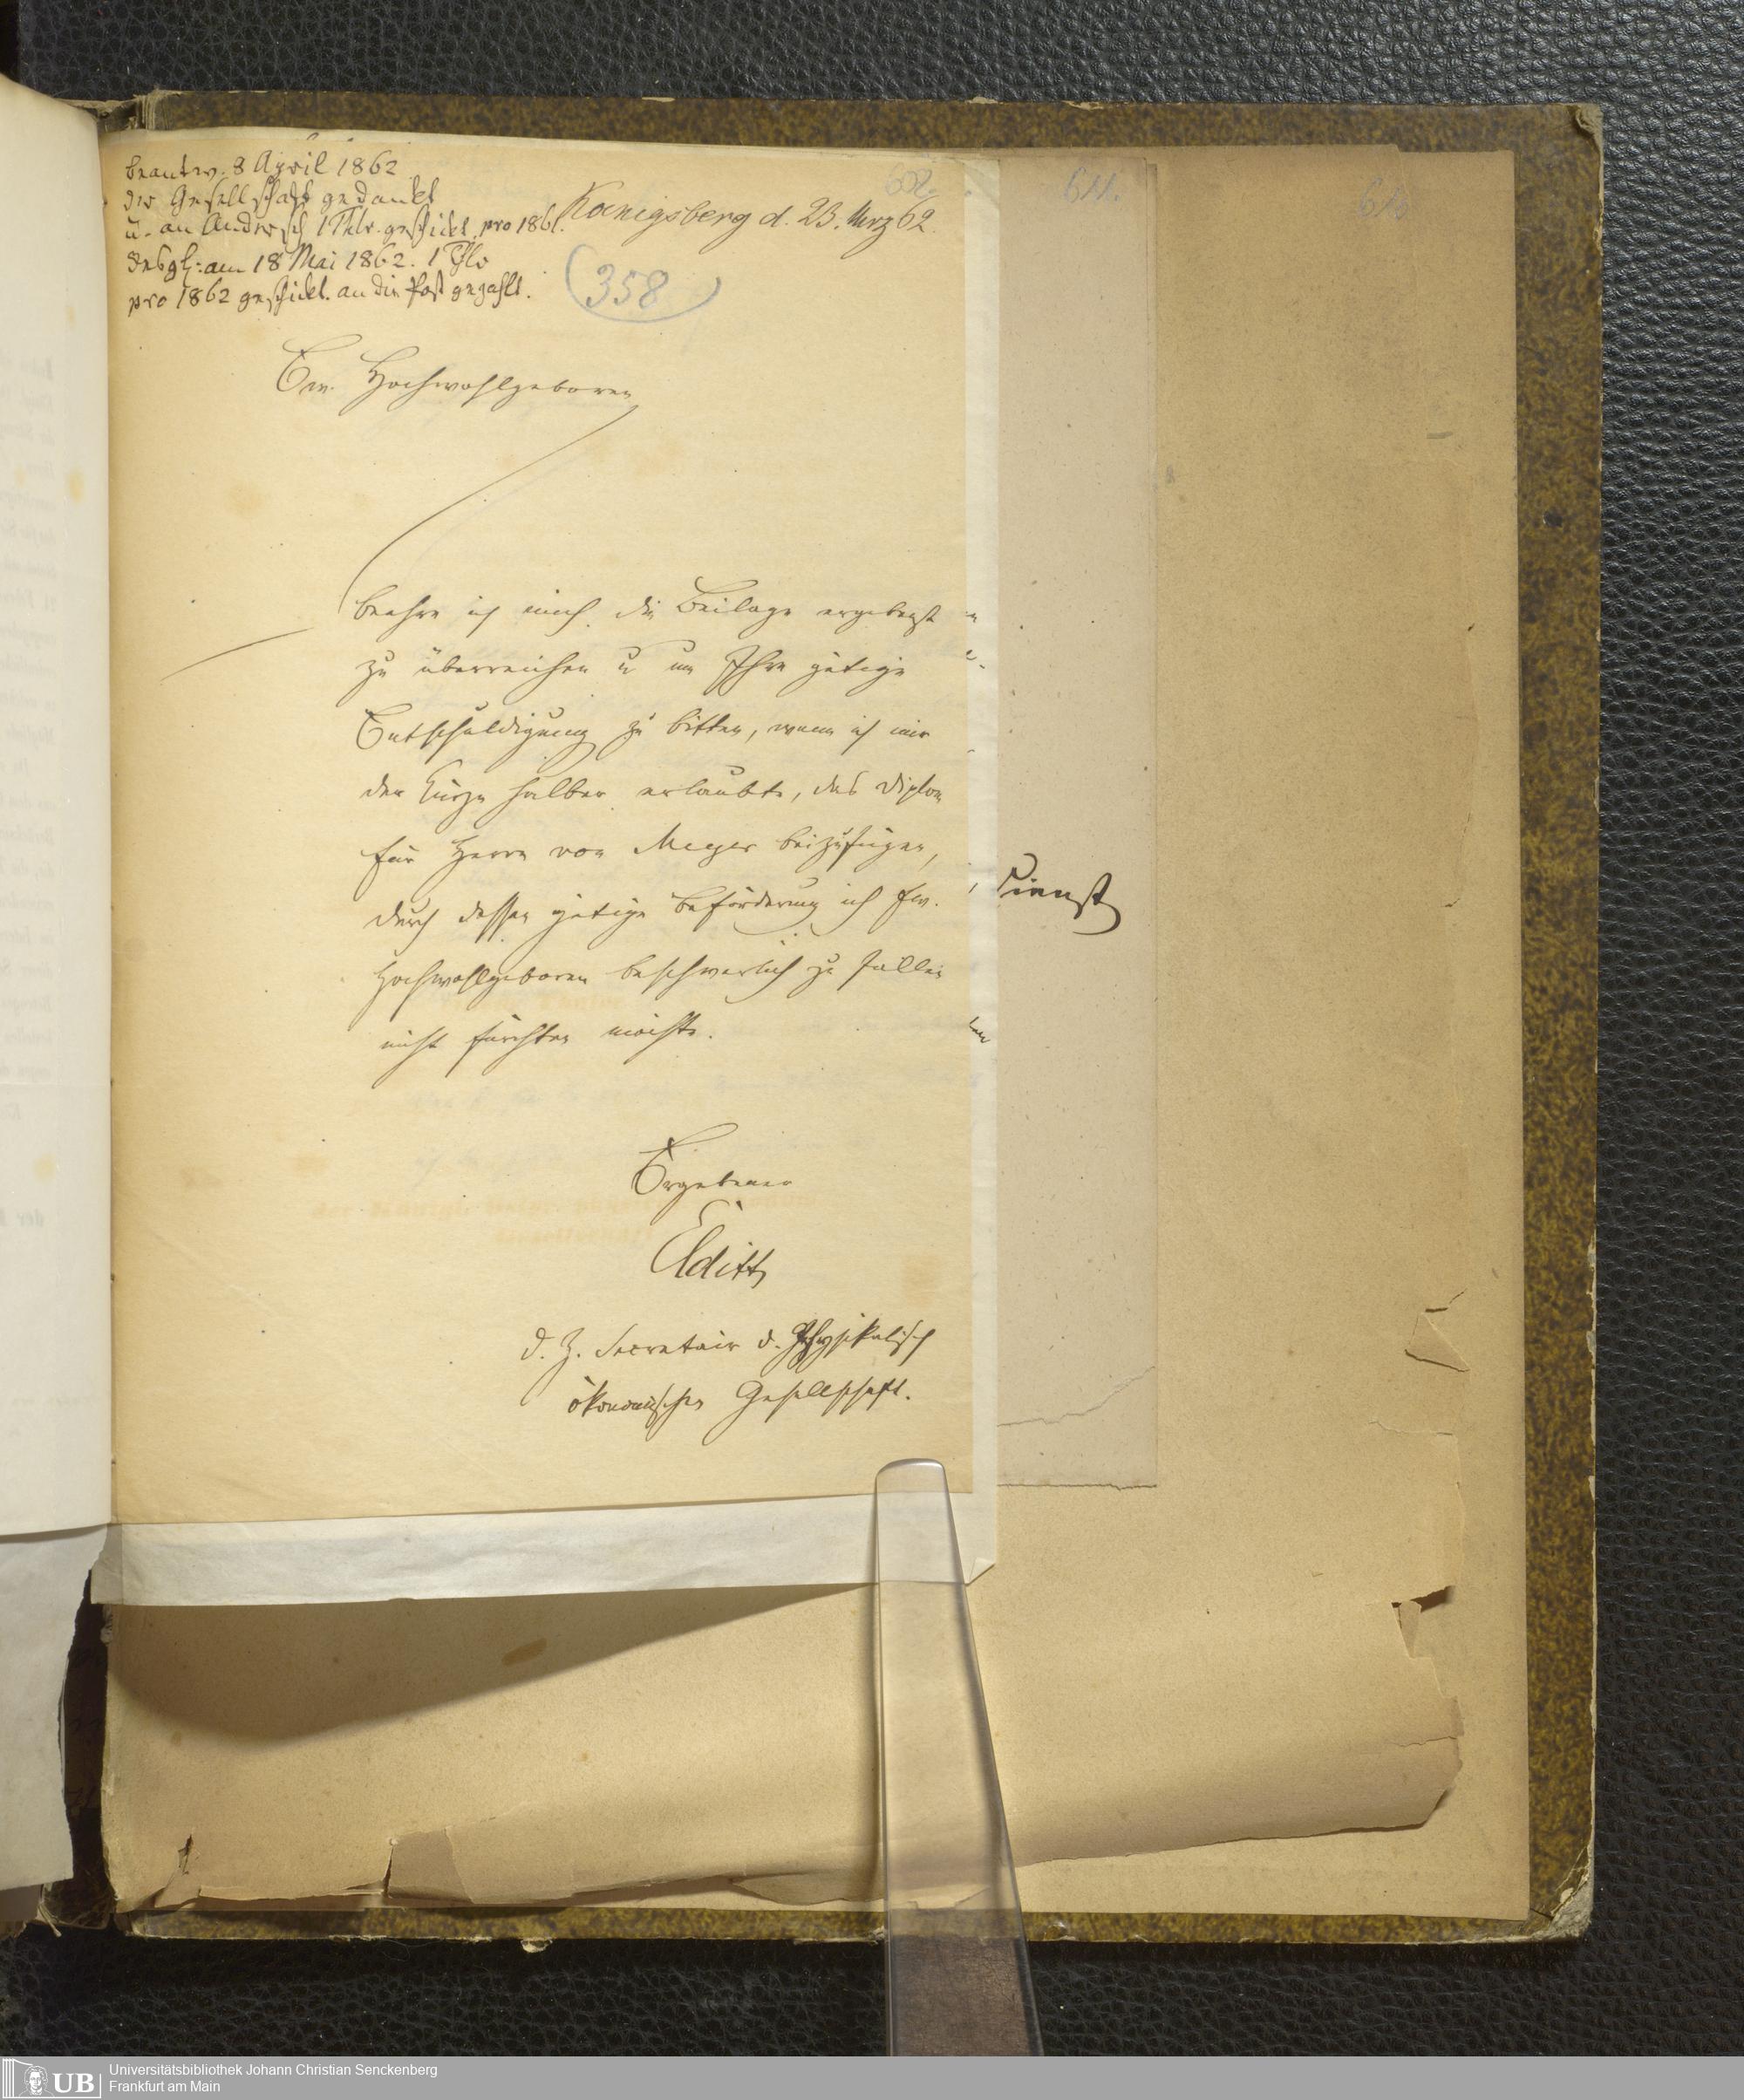 beantw. 8 April 1862
der Gesellschaft gedankt
u. an Andersch 1 Thlr. geschickt pro 1861.
desgl: am 18 Mai 1862. 1 Thlr
pro 1862 geschickt. an die Post gezahlt.
602.
Koenigsberg d. 23. Merz 62.
(358)
611.
616
Ew. Hochwohlgeboren
beehre ich mich die Beilage ergebenst
zu überreichen u um Ihre gütige
Entschuldigung zu bitten, wenn ich mir
der Kürze halber erlaubte, das Diplom
für Herrn von Meyer beizufügen,
durch dessen gütige Beförderung ich Ew.
Hochwohlgeboren beschwerlich zu fallen
nicht fürchten möchte.
Dienst
Ergebener
Elditt
d. Z. Secretair d. Physikalisch
ökonomischen Gesellschaft.
UB
Universitätsbibliothek Johann Christian Senckenberg
Frankfurt am Main